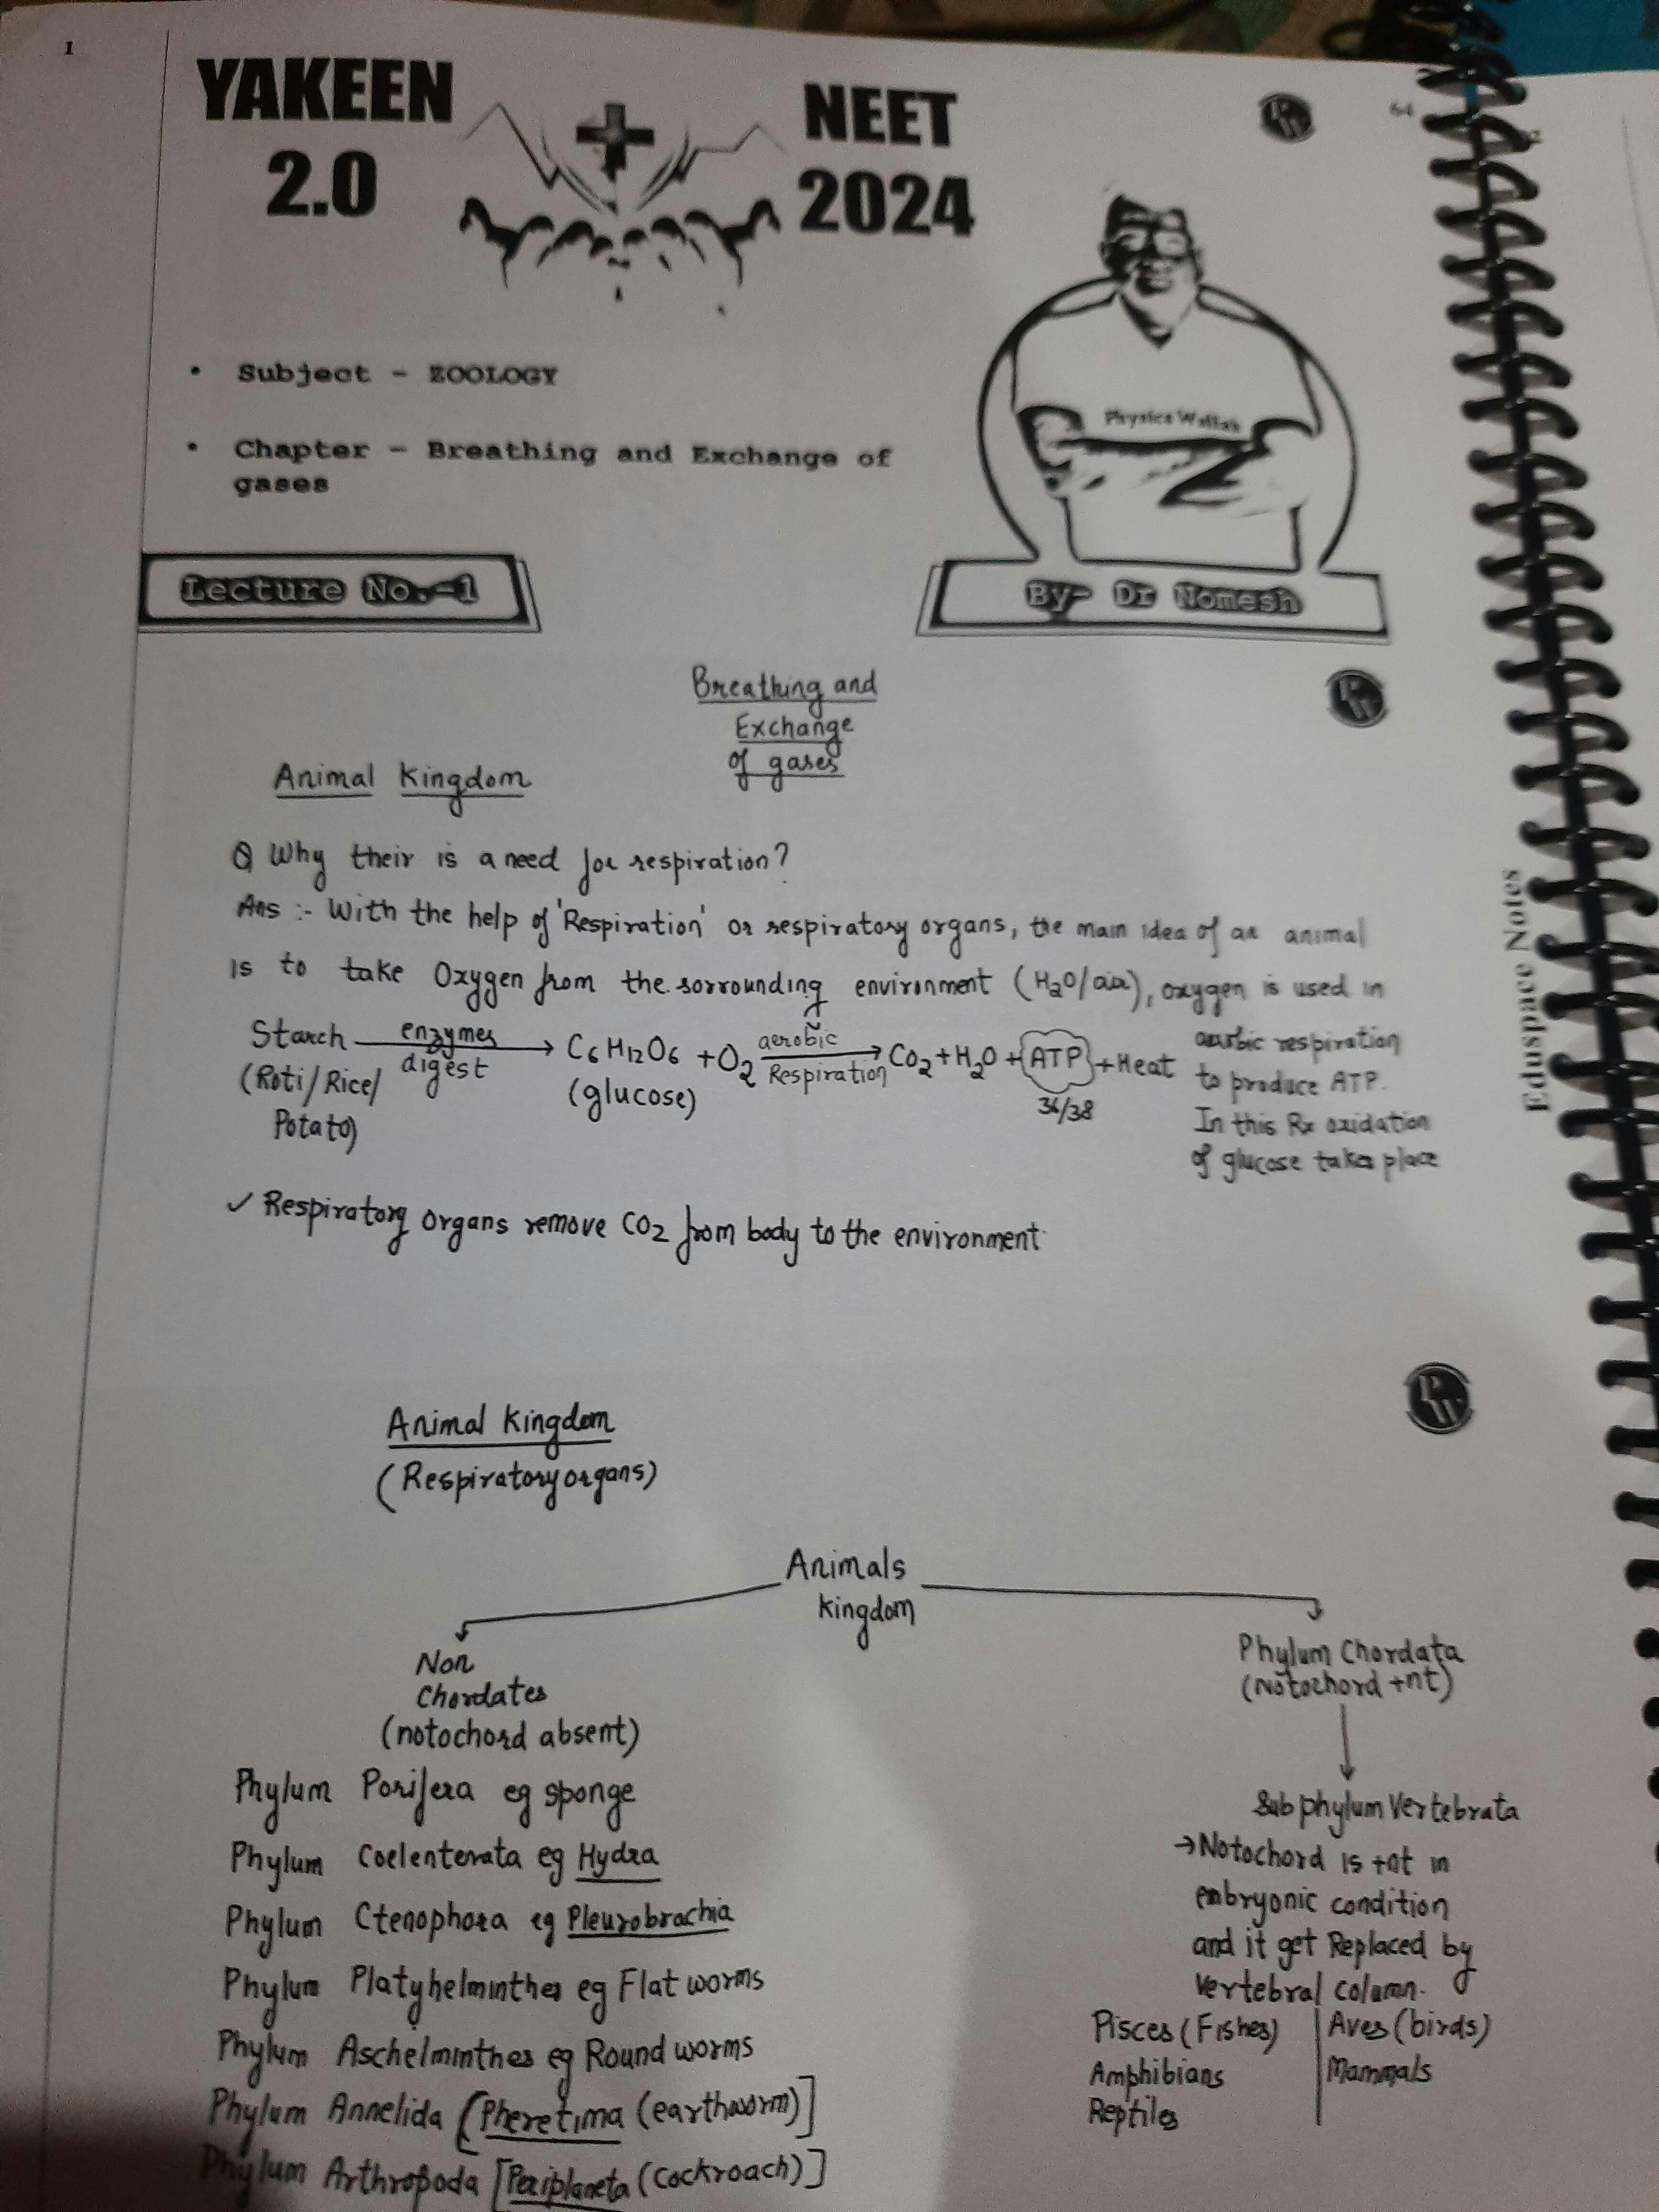 1
YAKEEN NEET
2.0 2024
64
• Subject - ZOOLOGY
Physics Wallah
• Chapter - Breathing and Exchange of
gases
Lecture No.-1
By- Dr Nomesh
Breathing and
Exchange
of gases
Animal Kingdom
Q Why their is a need for respiration?
Ans :- With the help of 'Respiration' or respiratory organs, the main idea of an animal
is to take Oxygen from the sorrounding environment (H2O/air), oxygen is used in
Starch enzymes digest → C6H12O6 + O2 aerobic Respiration → CO2 + H2O + ATP + Heat
(Roti/Rice/
Potato)
(glucose)
36/38
aerobic respiration
to produce ATP.
In this Rx oxidation
of glucose takes place
✓ Respiratory organs remove CO2 from body to the environment
Eduspace Notes
Animal Kingdom
(Respiratory organs)
Animals
Kingdom
Non
Chordates
(notochord absent)
Phylum Porifera eg sponge
Phylum Coelenterata eg Hydra
Phylum Ctenophora eg Pleurobrachia
Phylum Platyhelminthes eg Flat worms
Phylum Aschelminthes eg Round worms
Phylum Annelida [Pheretima (earthworm)]
Phylum Arthropoda [Periplaneta (Cockroach)]
Phylum Chordata
(Notochord +nt)
Subphylum Vertebrata
→Notochord is +nt in
embryonic condition
and it get Replaced by
vertebral column.
Pisces (Fishes) | Aves (birds)
Amphibians | Mammals
Reptiles